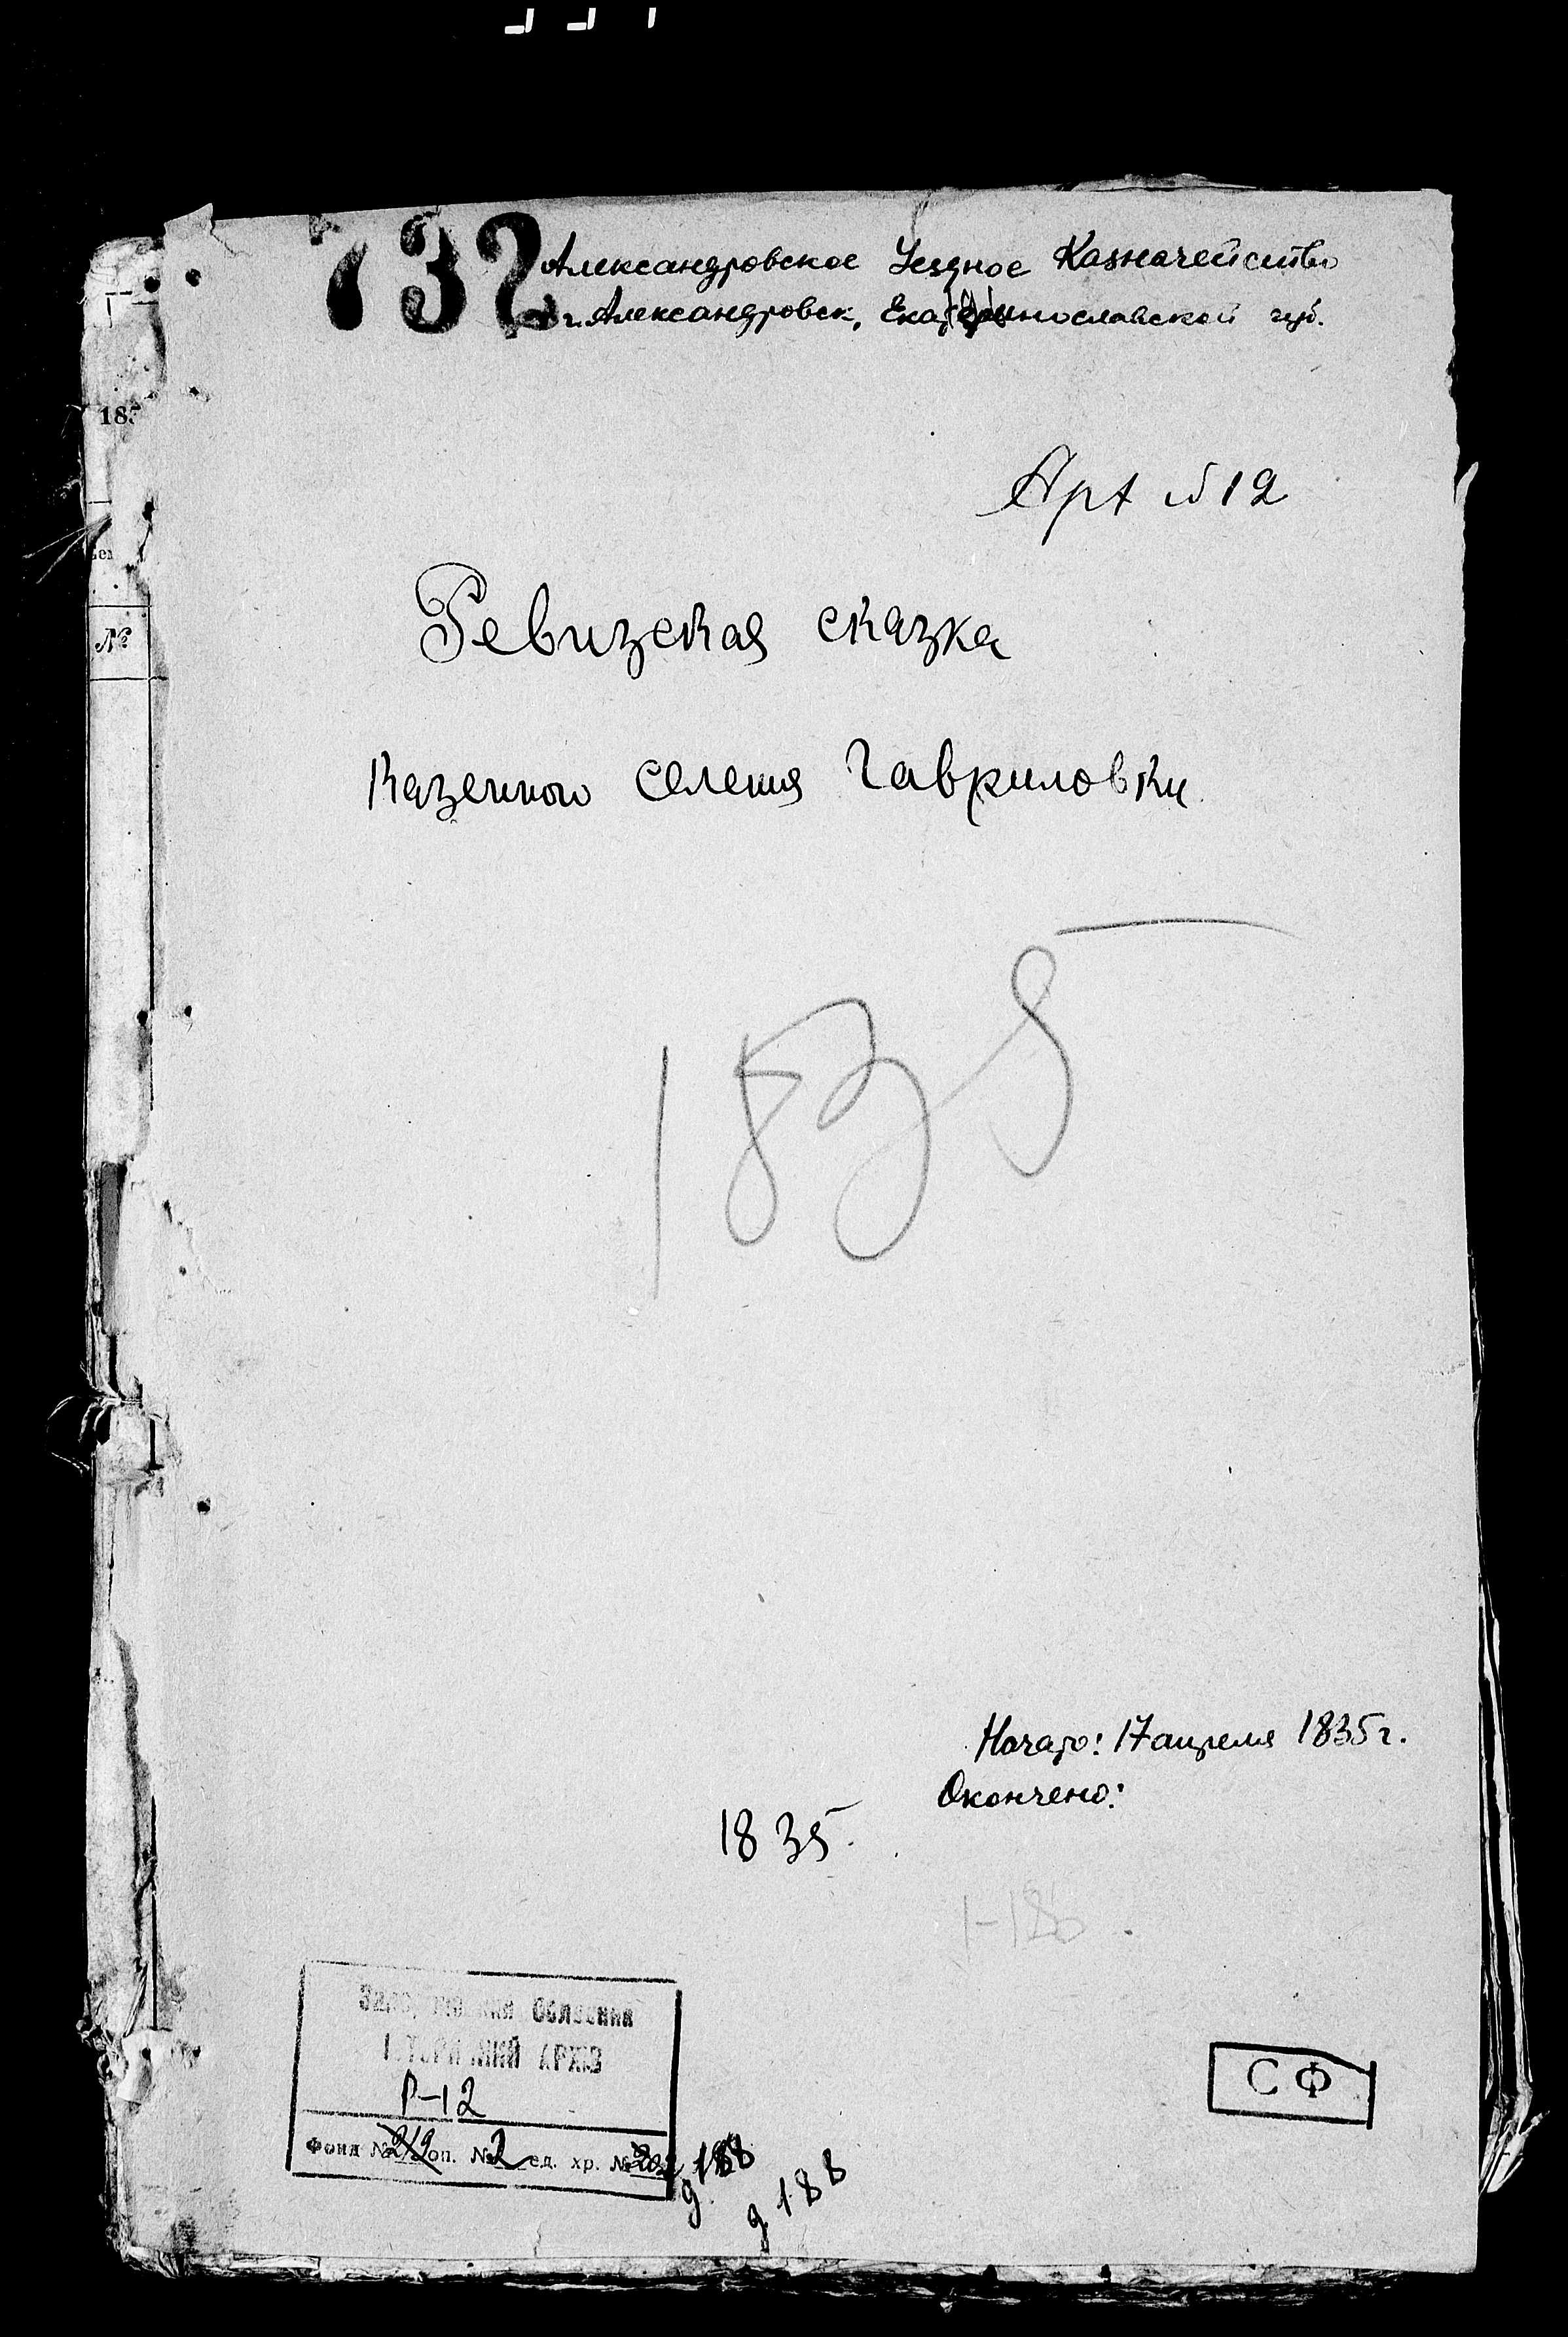 732
Александровское Уездное Казначейство
г. Александровск, Екатеринославской губ.
185
№
Арх № 12
Ревизская сказка
Казенного селения Гавриловки
1835
Начато: 17 апреля 1835 г.
Окончено:
1835
1-186
АРХІВ
Р-12
Фонд № 212 оп. № 2 ед. хр. №
д 188
д 188
СФ